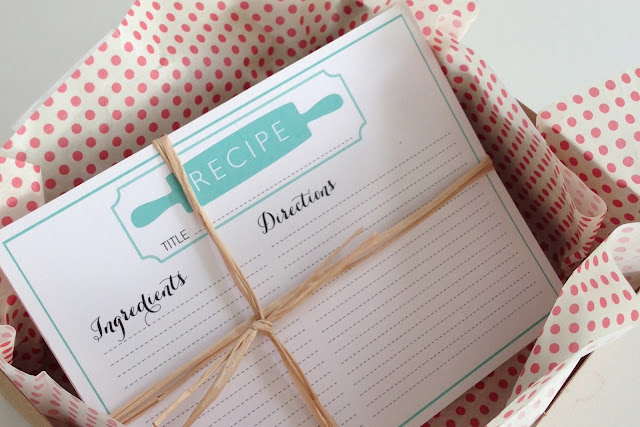 RECIPE
TITLE
Ingredients
Directions